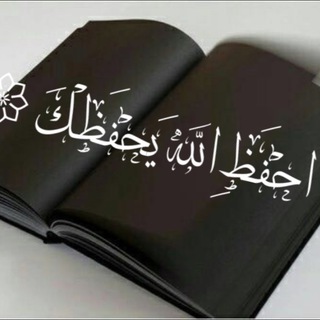 احْفَظِ اللَّهَ يَحْفَظْكَ